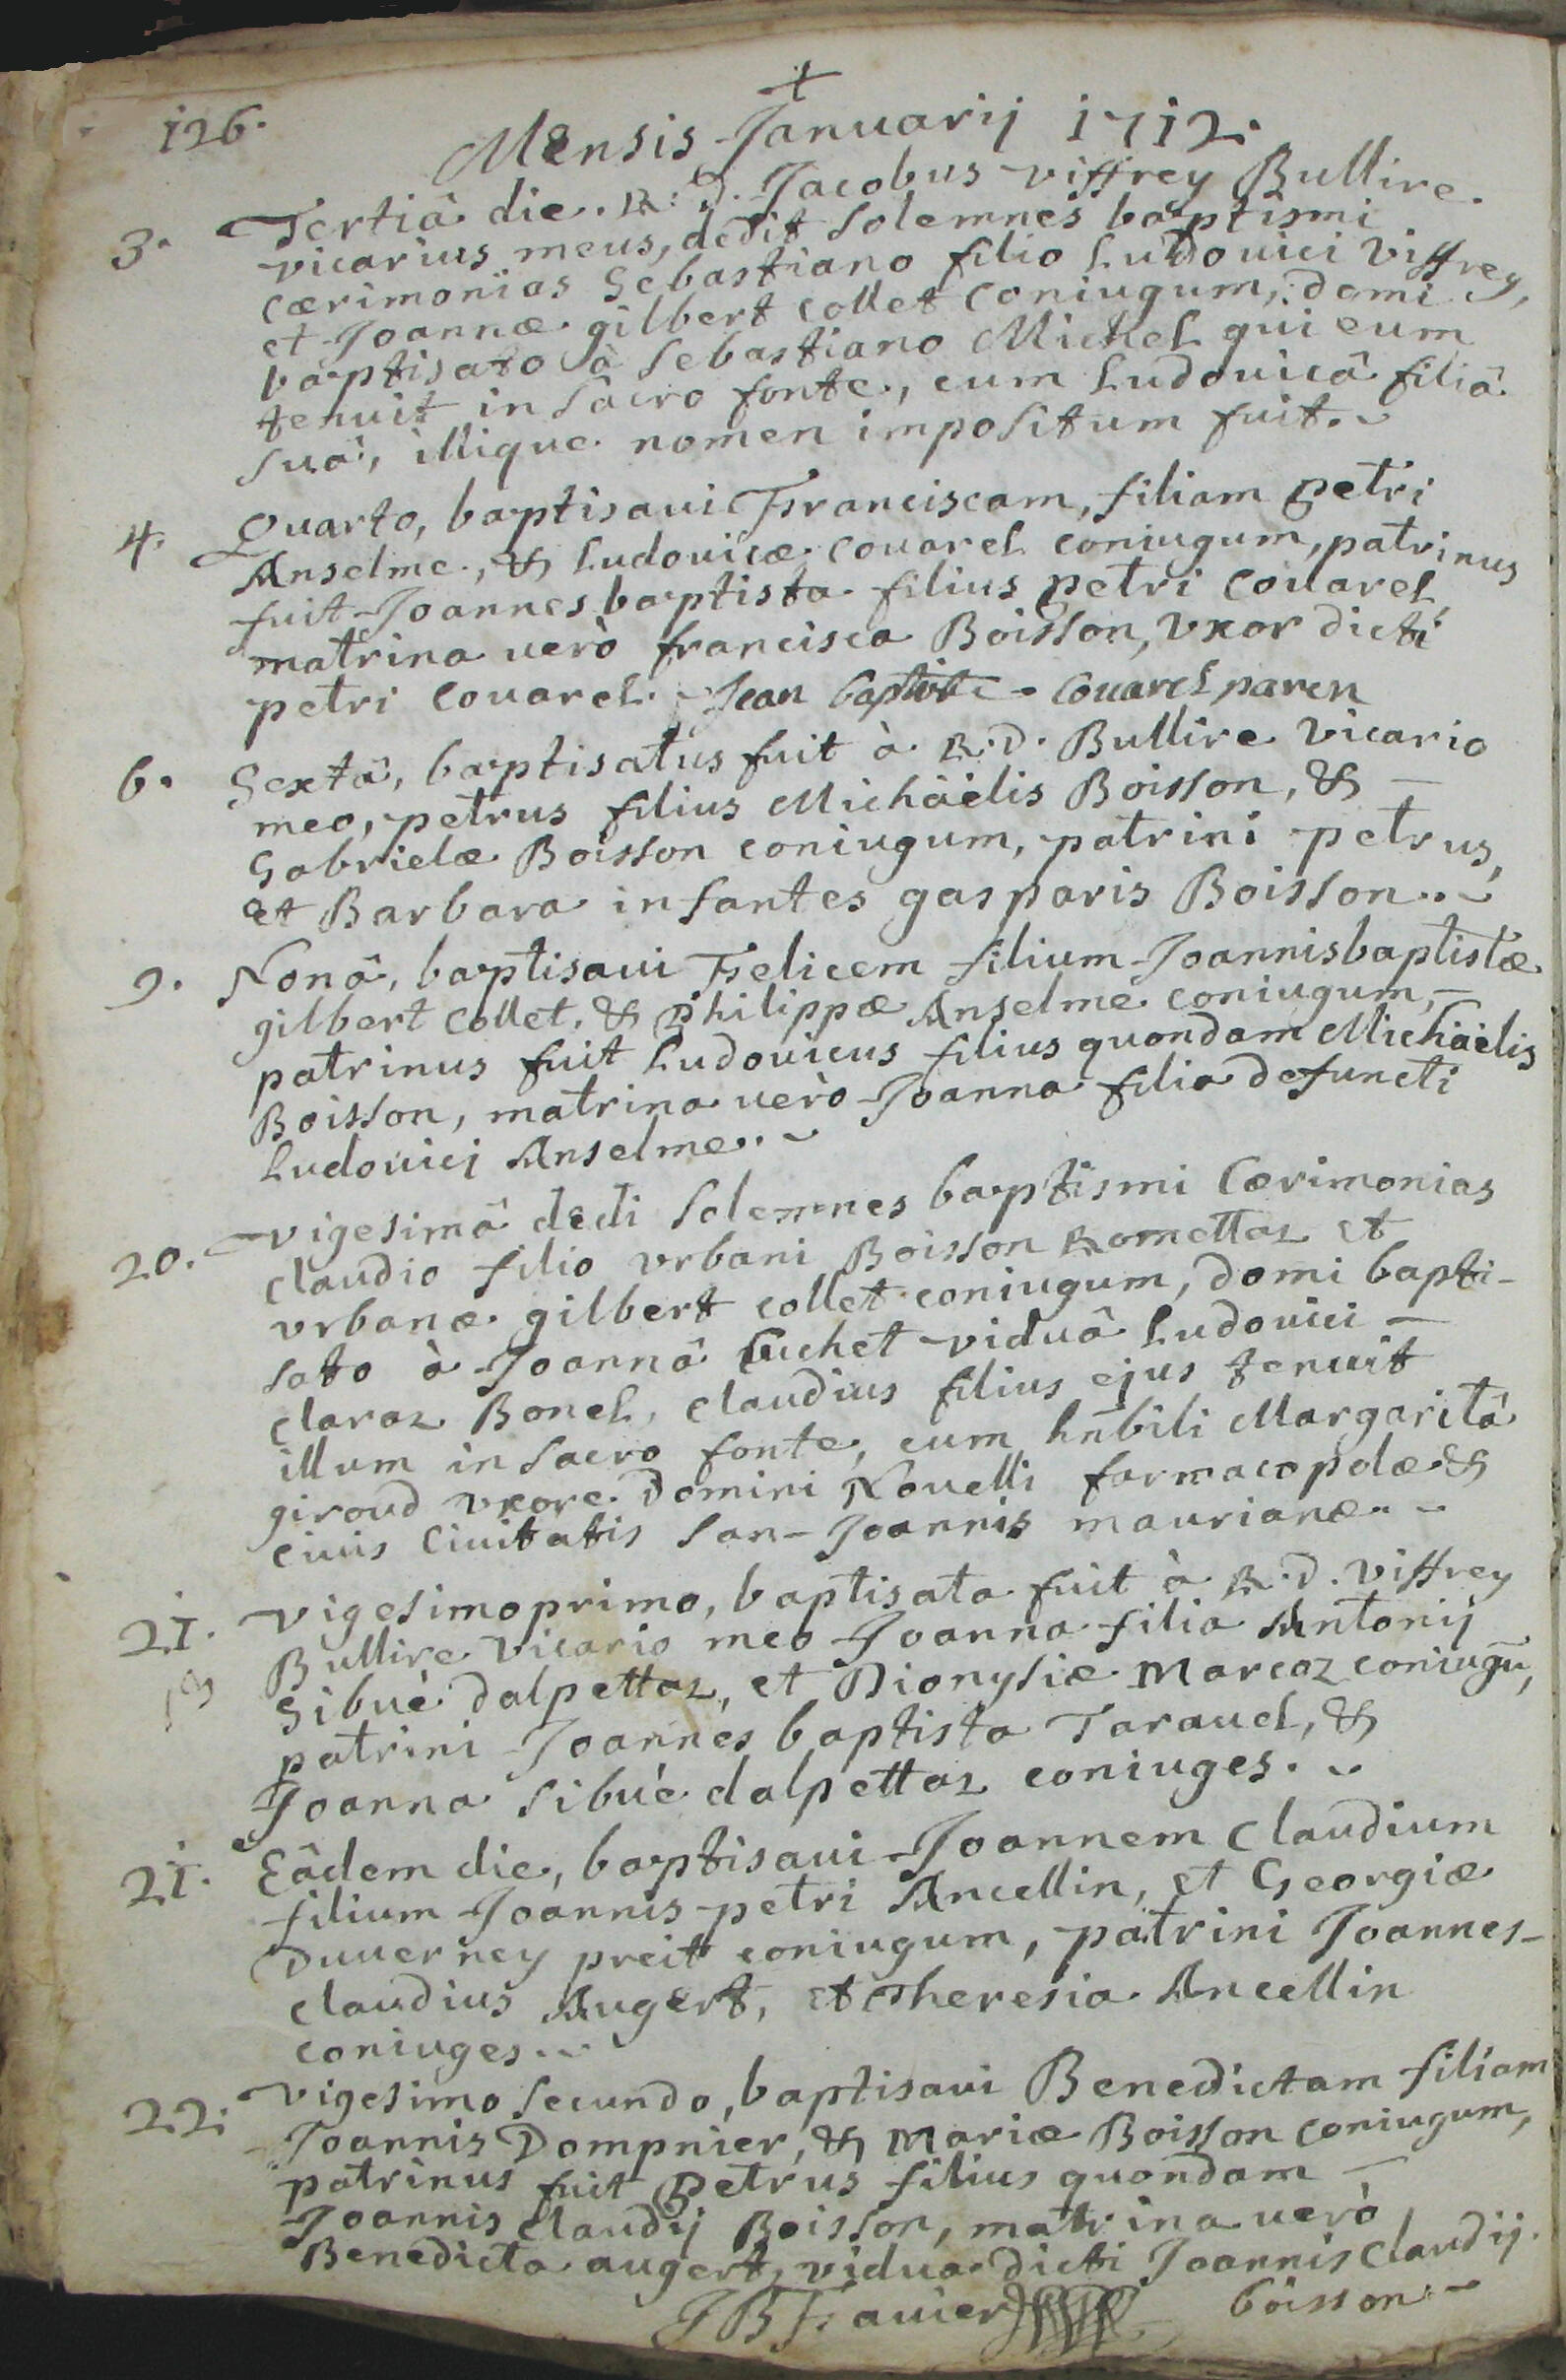 126.
+
Mensis Januarij 1712.
3. Tertiâ die. R: D. Jacobus viffrey Bullire.
vicarius meus, dedit solemnes baptismi
cærimonias Sebastiano filio Ludovici Viffrey,
et Joannæ gilbert collet coniugum, domi
baptisato à Sebastiano Michel qui eum
tenuit in sacro fonte, cum Ludouicâ filiâ
suâ, illique nomen impositum fuit.
4. Quarto, baptisaui Franciscam, filiam petri
Anselme, & Ludouicæ couarel coniugum, patrinus
fuit Joannes baptista filius petri Couarel,
matrina uerò francisca Boisson, vxor dicti
petri Couarel. Jean baptiste Couarel paren
6. Sextâ, baptisatus fuit à R. D. Bullire vicario
meo, petrus filius Michäelis Boisson, & –
Gabrielæ Boisson coniugum, patrini petrus,
et Barbara infantes gasparis Boisson..
9. Nonâ, baptisaui Felicem filium Joannisbaptistæ
gilbert Collet, & philippæ Anselme coniugum, –
patrinus fuit Ludouicus filius quondam Michäelis
Boisson, matrina uerò Joanna filia defuncti
Ludouici Anselme.
20. vigesimâ dedi solemnes baptismi Cærimonias
claudio filio vrbani Boisson Romettaz et
vrbanæ gilbert collet coniugum, domi bapti-
sato à Joannâ buchet viduâ Ludouici –
claraz Bonel, claudius filius ejus tenuit
illum in sacro fonte, cum hnbili Margaritâ
giroud vxore Domini Nouelli farmacopolæ &
ciuis Ciuitatis san-Joannis maurianæ..
21. vigesimoprimo, baptisata fuit à R. D. viffrey
Bullire vicario meo Joanna filia Antonij
Sibué dalpettaz, et Dionysiæ Marcoz coniugũ,
patrini Joannes baptista Taravel, &
Joanna sibué dalpettaz coniuges.
21. Eâdem die, baptisaui Joannem claudium
filium Joannis petri Ancellin, et Georgiæ
Duuerney preit coniugum, patrini Joannes-
claudius Augert, et Theresia Ancellin
coniuges..
22. vigesimo secundo, baptisaui Benedictam filiam
Joannis Dompnier, & Mariæ Boisson coniugum,
patrinus fuit Petrus filius quondam –
Joannis claudij Boisson, matrina uerò
Benedicta augert, vidua dicti Joannis claudij
boisson
JB Favier